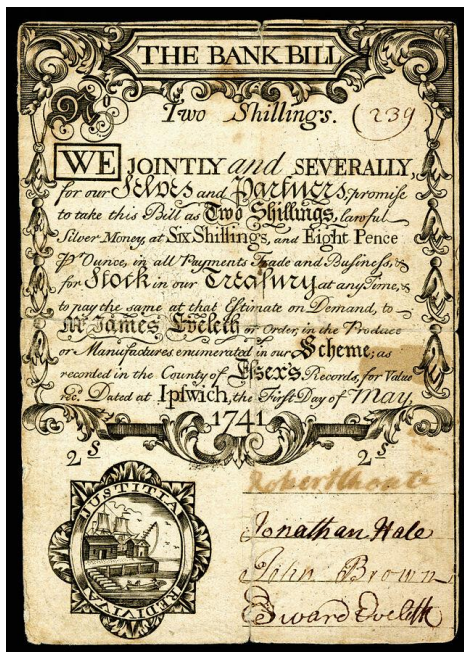 THE BANK BILL
No
Two Shillings. (239)
WE JOINTLY and SEVERALLY,
for our Selves and Partners, promise
to take this Bill as Two Shillings, lawful
Silver Money, at Six Shillings, and Eight Pence
℔ Ounce, in all Payments Trade and Business, &
for Stock in our Treasury at any Time, &
to pay the same at that Estimate on Demand, to
Mr James Eveleth or Order, in the Produce
or Manufactures enumerated in our Scheme; as
recorded in the County of Essex's Records, for Value
rec. Dated at Ipswich, the First Day of May,
1741
2 S 2 S
Robert Choate
JUSTITIA
Jonathan Hale
John Brown
REDIVIVA
Edward Eveleth